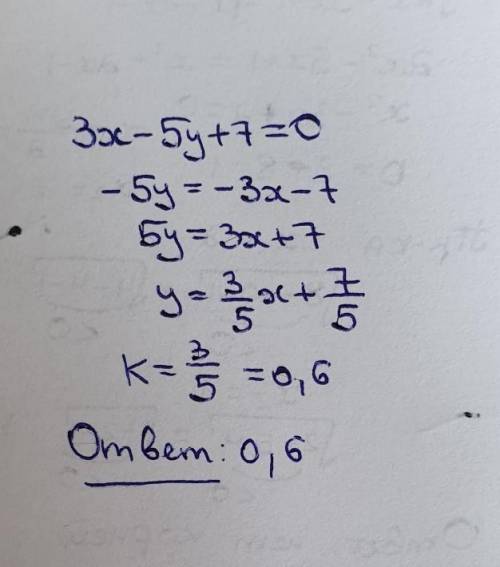 3x-5y+7=0
-5y=-3x-7
5y=3x+7
y=3/5x+7/5
K=3/5=0,6
Ответ: 0,6